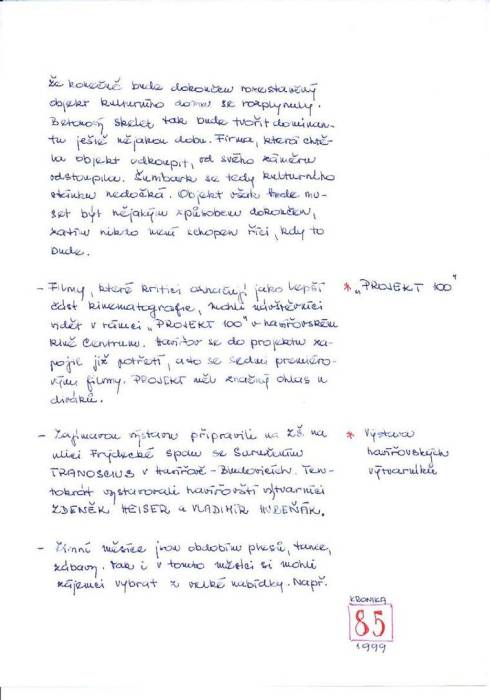 že konečně bude dokončen rozestavěný
objekt kulturního domu se rozplynuly.
Betonový skelet tak bude tvořit dominan-
tu ještě nějakou dobu. Firma, která chtě-
la objekt odkoupit, od svého záměru
odstoupila. Šumbark se tedy kulturního
stánku nedočká. Objekt však bude mu-
set být nějakým způsobem dokončen,
zatím nikdo není schopen říci, kdy to
bude.
- Filmy, které kritici označují jako lepší * „PROJEKT 100"
část kinematografie, mohli návštěvníci
vidět v rámci „PROJEKT 100" v havířovském
kině Centrum. Havířov se do projektu za-
pojil již potřetí, a to se sedmi premiéro-
vými filmy. PROJEKT měl značný ohlas u
diváků.
- Zajímavou výstavu připravili na ZŠ na * Výstava
ulici Frýdecké spolu se Sdružením havířovských
TRANOSCIUS v Havířově - Bludovicích. Ten- výtvarníků
tokrát vystavovali havířovští výtvarníci
ZDENĚK HEISER a VLADIMÍR HUBEŇÁK.
- Zimní měsíce jsou obdobím plesů, tance,
zábavy. Tak i v tomto měsíci si mohli
zájemci vybrat z velké nabídky. Např.
KRONIKA
85
1999